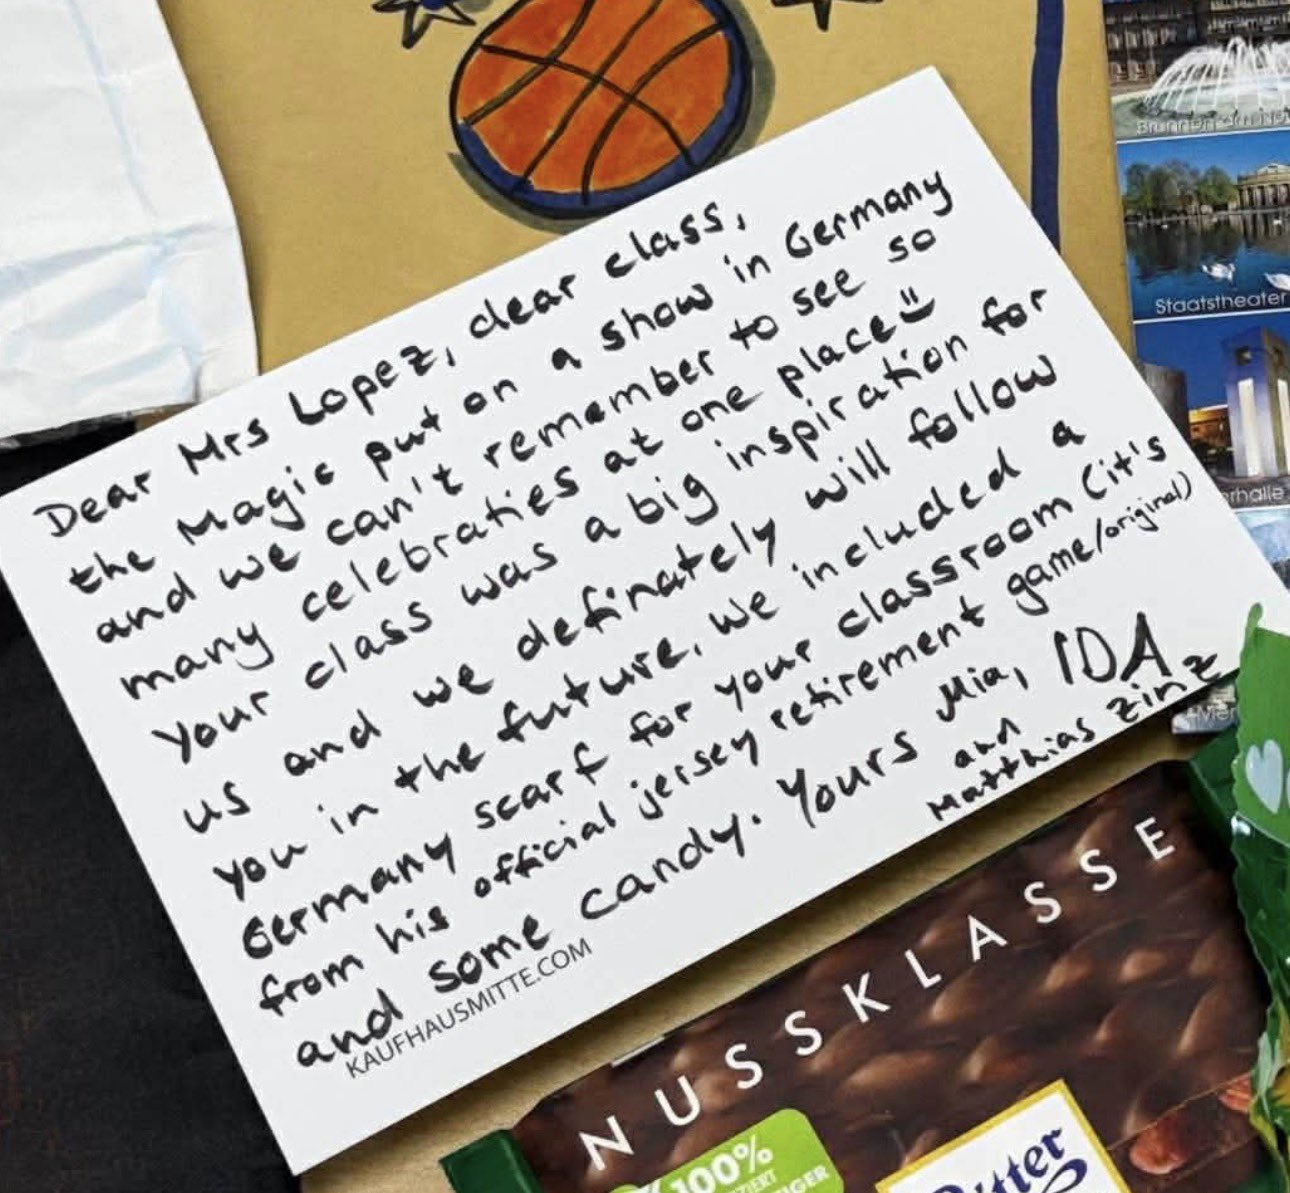 Brunnen am Ne
Staatstheater
rhalle
Dear Mrs Lopez, dear class,
the Magic put on a show in Germany
and we can't remember to see so
many celebraties at one place
Your class was a big inspiration for
us and we definately will follow
you in the future. We included a
Germany scarf for your classroom (it's
from his official jersey retirement game/original)
and some candy. Yours Mia, IDA
and
Matthias Zinz
KAUFHAUSMITTE.COM
NUSSKLASSE
100%
ZIERT
IGER
Ritter